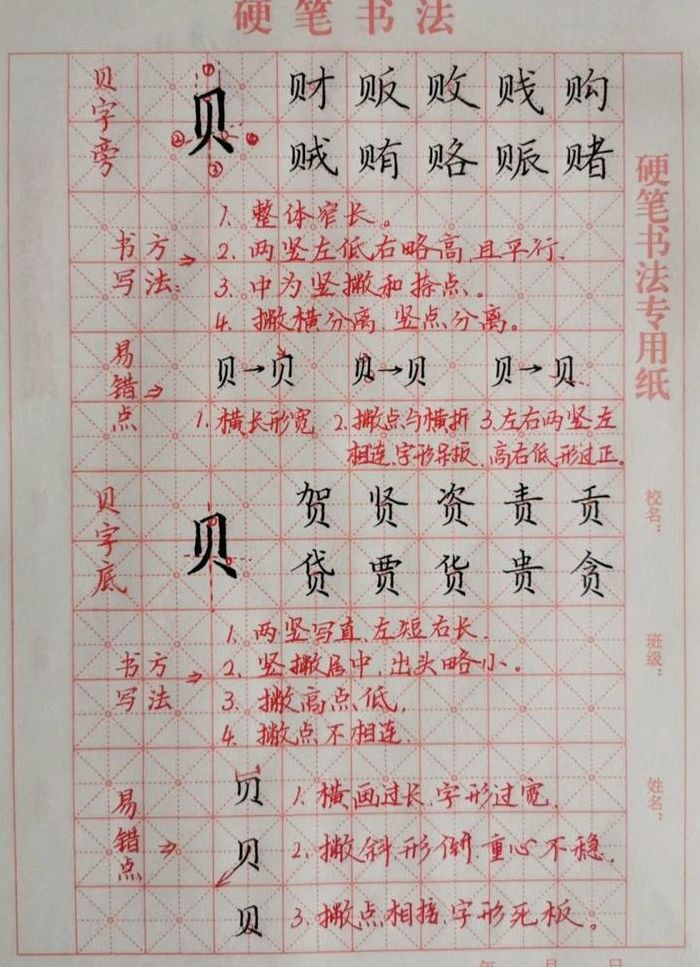 硬笔书法
硬笔书法专用纸
校名：
班级：
姓名：
贝字旁
贝
① ② ③ ④
财 贩 败 贱 购
贼 贿 赂 赈 赌
书写方法：
1. 整体窄长。
2. 两竖左低右略高，且平行．
3. 中为竖撇和捺点。
4. 撇横分离、竖点分离。
易错点
贝→贝 贝→贝 贝→贝
1. 横长形宽
2. 撇点与横折相连．字形呆板．
3. 左右两竖左高右低．形过正。
贝字底
贝
贺 贤 资 责 贡
贷 贾 货 贵 贪
书写方法
1. 两竖写直．左短右长．
2. 竖撇居中，出头略小。
3. 撇高点低．
4. 撇点不相连．
易错点
贝 1. 横画过长．字形过宽．
贝 2. 撇斜．形倾．重心不稳．
贝 3. 撇点相接．字形死板。
年 月 日